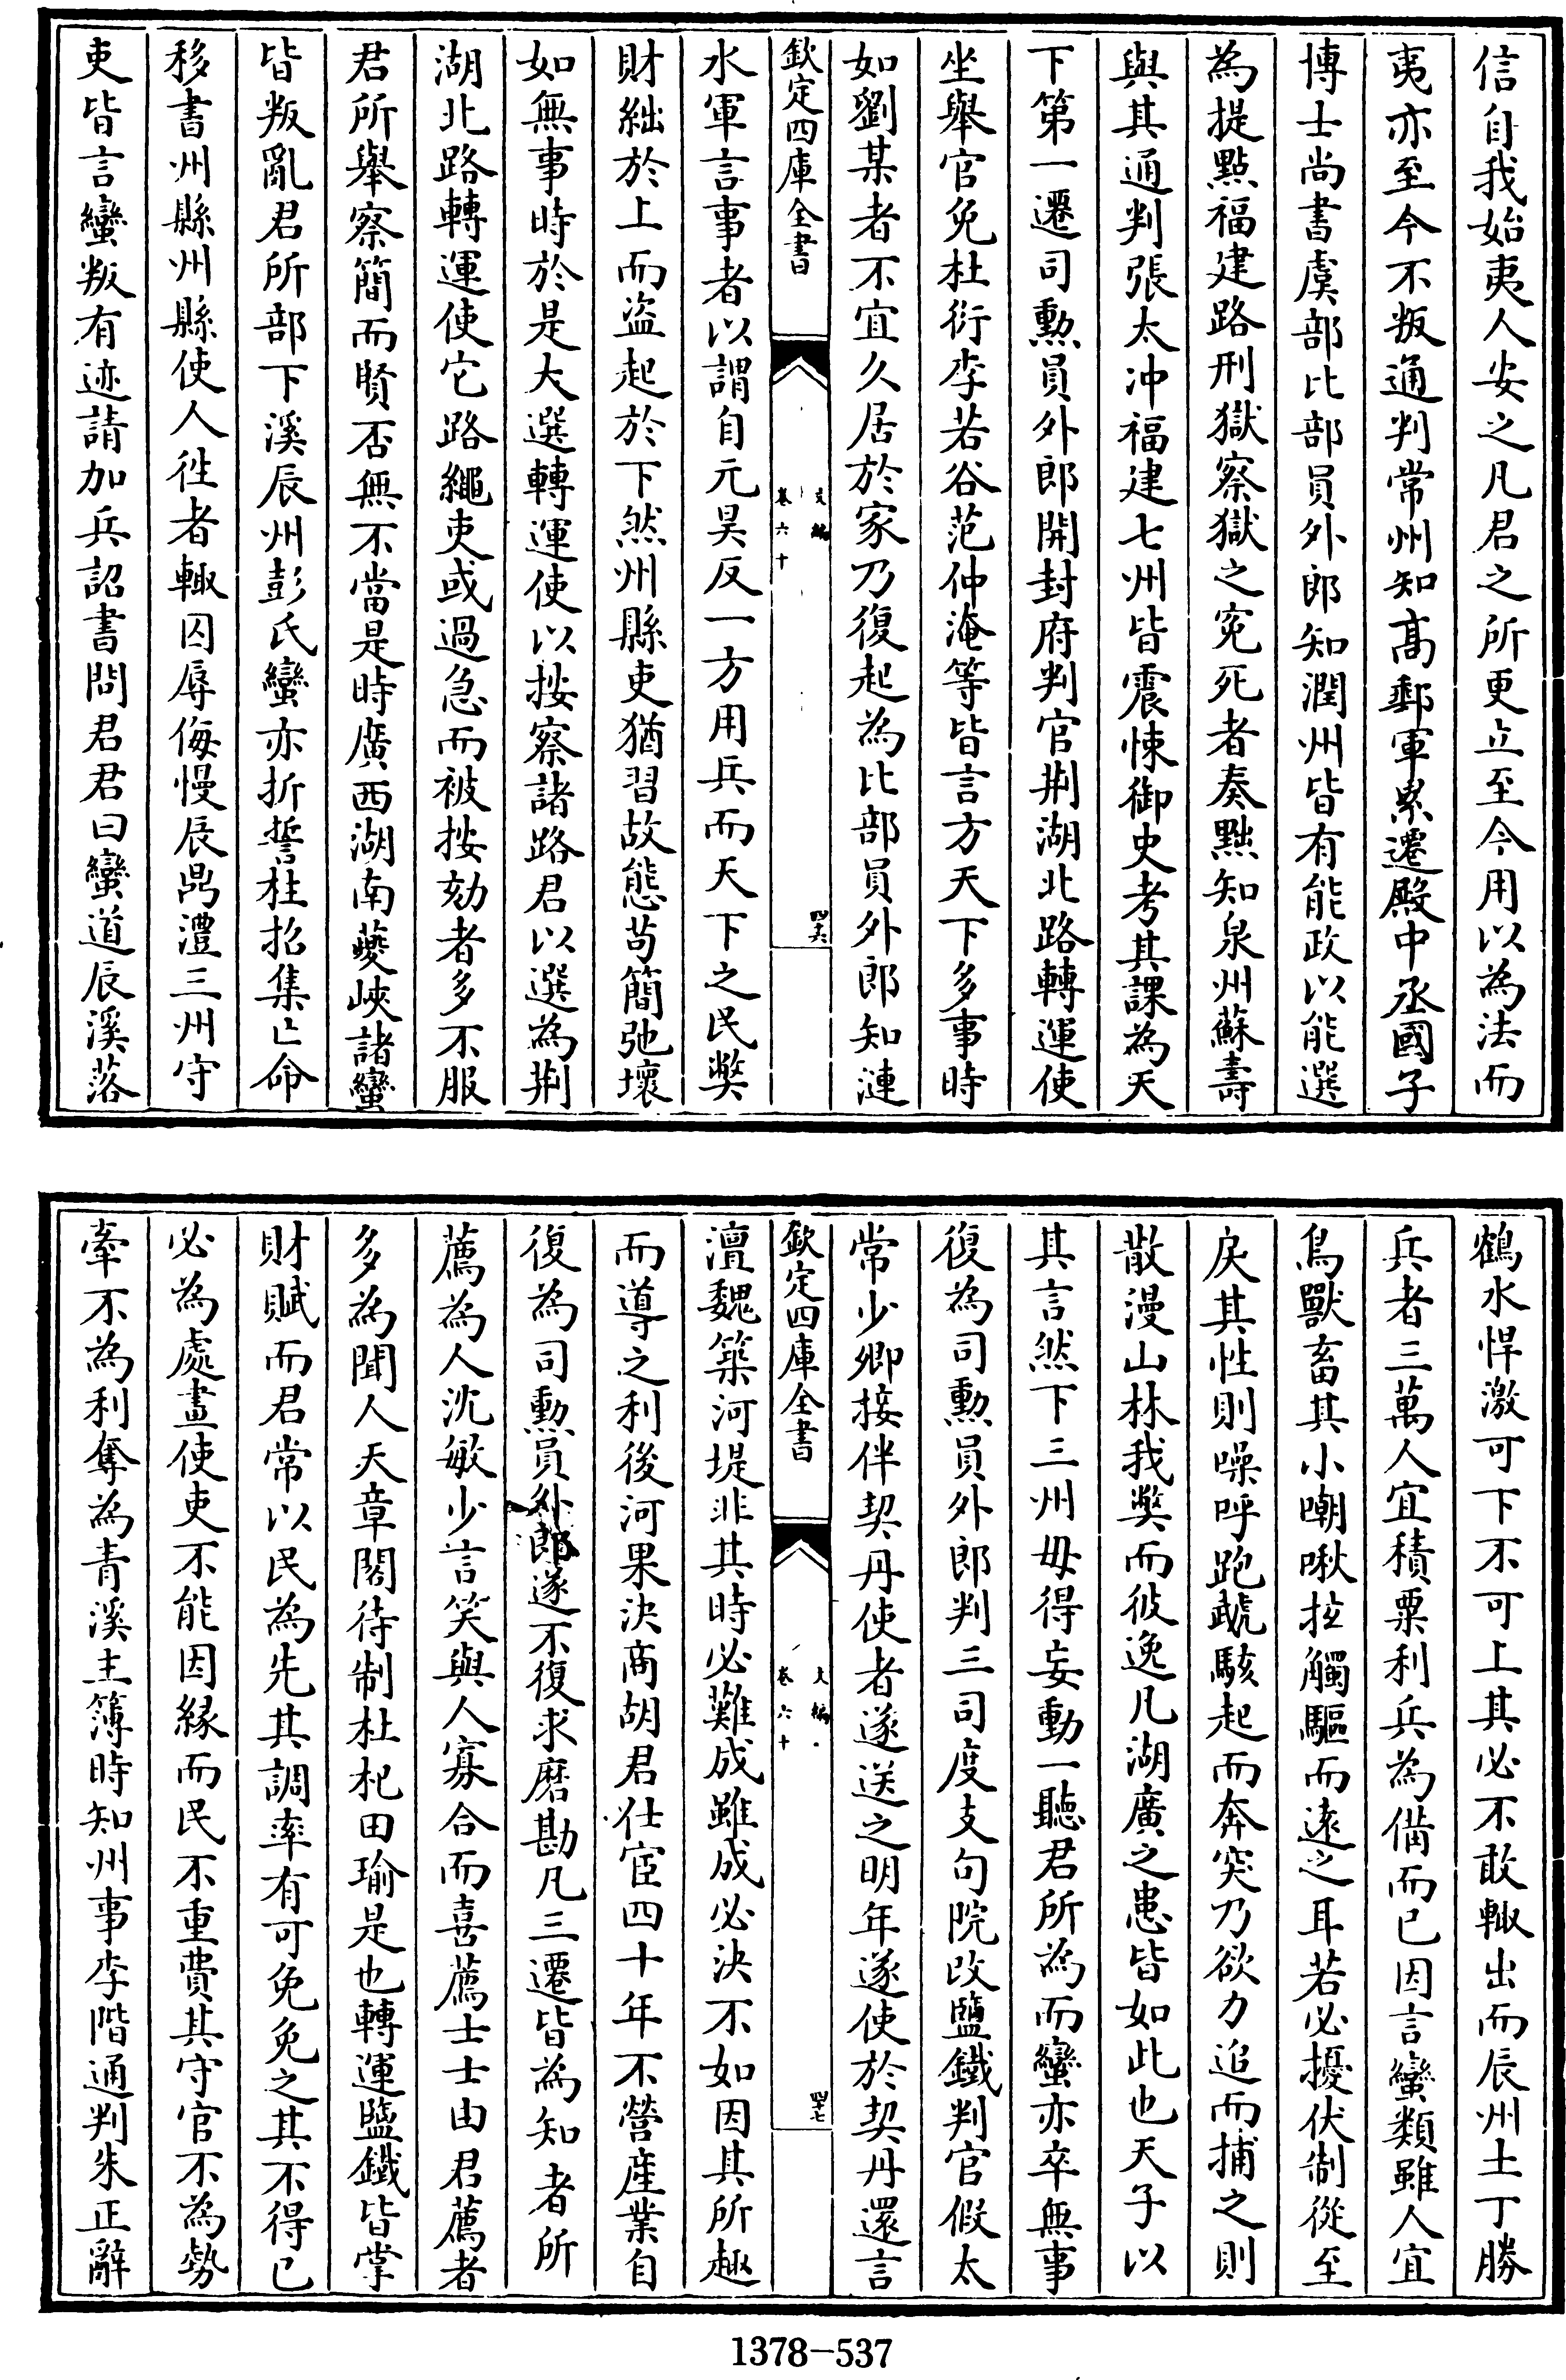 信自我始夷人安之凡君之所更立至今用以為法而
夷亦至今不叛通判常州知高郵軍累遷殿中丞國子
博士尚書虞部比部員外郎知潤州皆有能政以能選
為提點福建路刑獄察獄之寃死者奏黜知泉州蘇壽
與其通判張太沖福建七州皆震悚御史考其課為天
下第一遷司勲員外郎開封府判官荆湖北路轉運使
坐舉官免杜衍李若谷范仲淹等皆言方天下多事時
如劉某者不宜久居於家乃復起為比部員外郎知漣
欽定四庫全書
文編
卷六十
四六
水軍言事者以謂自元昊反一方用兵而天下之民獘
財絀於上而盜起於下然州縣吏猶習故態苟簡弛壞
如無事時於是大選轉運使以按察諸路君以選為荆
湖北路轉運使它路繩吏或過急而被按劾者多不服
君所舉察簡而賢否無不當是時廣西湖南夔峽諸蠻
皆叛亂君所部下溪辰州彭氏蠻亦折誓柱招集亡命
移書州縣州縣使人徃者輙囚辱侮慢辰鼎澧三州守
吏皆言蠻叛有迹請加兵詔書問君君曰蠻道辰溪落
鶴水悍激可下不可上其必不敢輙出而辰州土丁勝
兵者三萬人宜積粟利兵為備而已因言蠻類雖人宜
鳥獸畜其小嘲啾抵觸驅而逺之耳若必擾伏制從至
戾其性則噪呼跑䠞駭起而奔突乃欲力追而捕之則
散漫山林我獘而彼逸凡湖廣之患皆如此也天子以
其言然下三州毋得妄動一聽君所為而蠻亦卒無事
復為司勲員外郎判三司度支句院改鹽鐵判官假太
常少卿接伴契丹使者遂送之明年遂使於契丹還言
欽定四庫全書
文編
卷六十
四七
澶魏築河堤非其時必難成雖成必決不如因其所趣
而導之利後河果決商胡君仕宦四十年不營産業自
復為司勲員外郎遂不復求磨勘凡三遷皆為知者所
薦為人沈敏少言笑與人寡合而喜薦士士由君薦者
多為聞人天章閣待制杜杞田瑜是也轉運鹽鐵皆掌
財賦而君常以民為先其調率有可免免之其不得已
必為處畫使吏不能因緣而民不重費其守官不為勢
牽不為利奪為青溪主簿時知州事李階通判朱正辭
1378-537